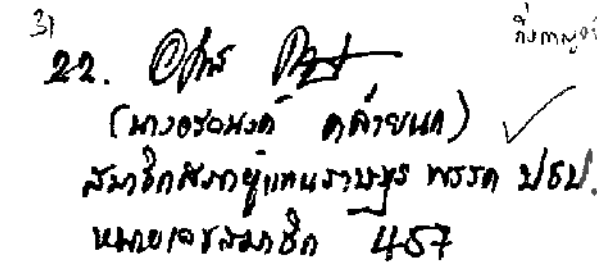 31
22.
(นางอรอนงค์ คล้ายนก)
สมาชิกสภาผู้แทนราษฎร พรรค ปชป.
หมายเลขสมาชิก 457